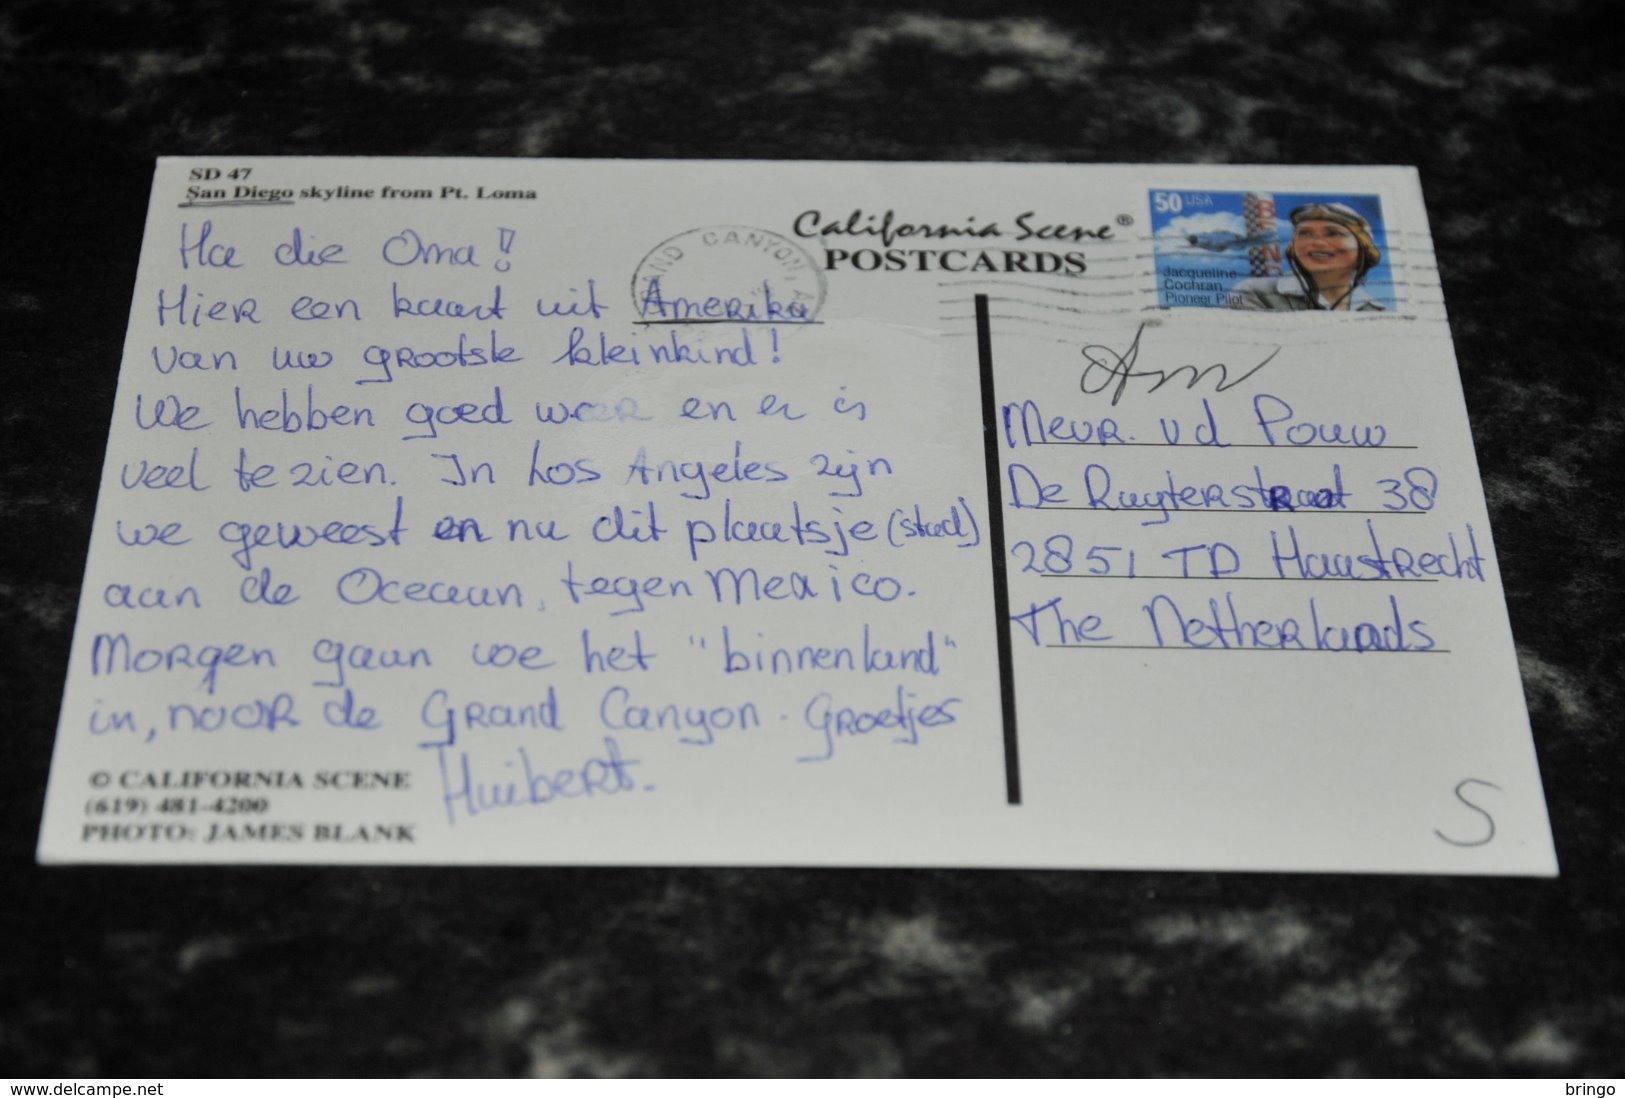 SD 47
San Diego skyline from Pt. Loma
California Scene®
POSTCARDS
50 USA
Jacqueline
Cochran
Pioneer Pilot
GRAND CANYON, A
Ha die Oma!
Hier een kaart uit Amerika
van uw grootste kleinkind!
We hebben goed weer en er is
veel te zien. In Los Angeles zijn
we geweest en nu dit plaatsje (stad)
aan de Oceaan, tegen Mexico.
Morgen gaan we het "binnenland"
in, naar de Grand Canyon. Groetjes
Huibert.
Mevr. vd Pouw
De Ruyterstraat 38
2851 TD Haastrecht
The Netherlands
S
© CALIFORNIA SCENE
(619) 481-4200
PHOTO: JAMES BLANK
www.delcampe.net
bringo